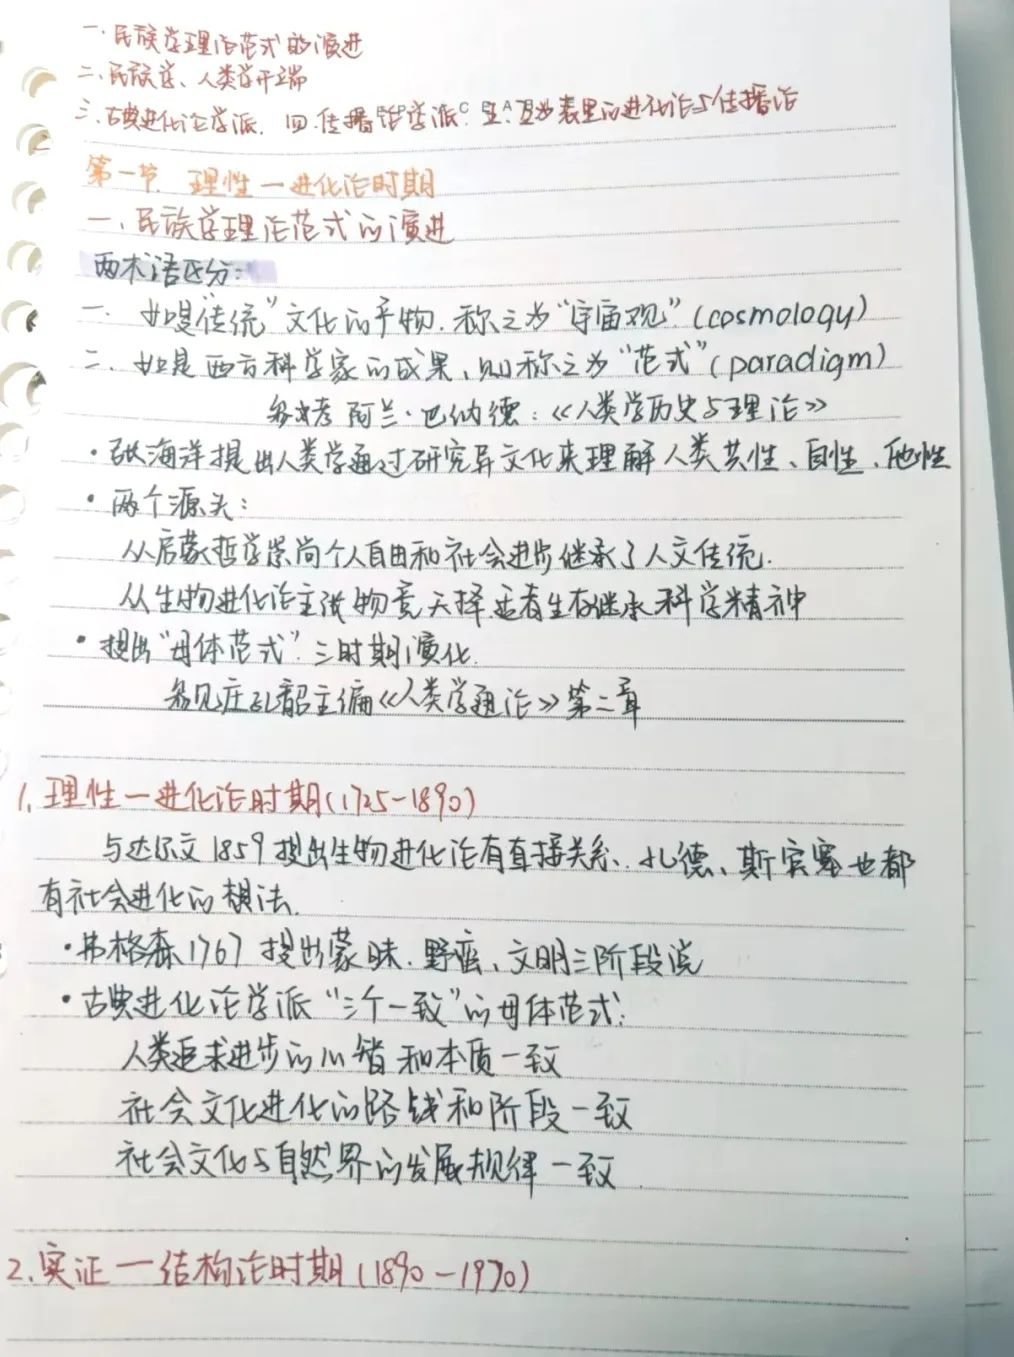 一.民族学理论范式的演进
二.民族学、人类学开端
三.古典进化论学派. 四.传播论学派. 五.互为表里的进化论与传播论
第一节. 理性一进化论时期
一.民族学理论范式的演进
两术语区分:
一. 如是"传统"文化的产物.称之为"宇宙观"(cosmology)
二.如是西方科学家的成果,则称之为"范式"(paradigm)
参考 阿兰·巴纳德:《人类学历史与理论》
·张海洋提出人类学通过研究异文化来理解人类共性、自性、他性
·两个源头:
从启蒙哲学崇尚个人自由和社会进步继承了人文传统.
从生物进化论主张物竞天择适者生存继承科学精神
·提出"母体范式".三时期演化.
参见庄孔韶主编《人类学通论》第二章
1.理性一进化论时期(1725-1890)
与达尔文1859提出生物进化论有直接关系. 孔德、斯宾塞也都
有社会进化的想法.
·弗格森1767 提出蒙昧.野蛮、文明三阶段说
·古典进化论学派"三个一致"的母体范式:
人类追求进步的心智和本质一致
社会文化进化的路线和阶段一致
社会文化与自然界的发展规律一致
2.实证一结构论时期(1890-1970)